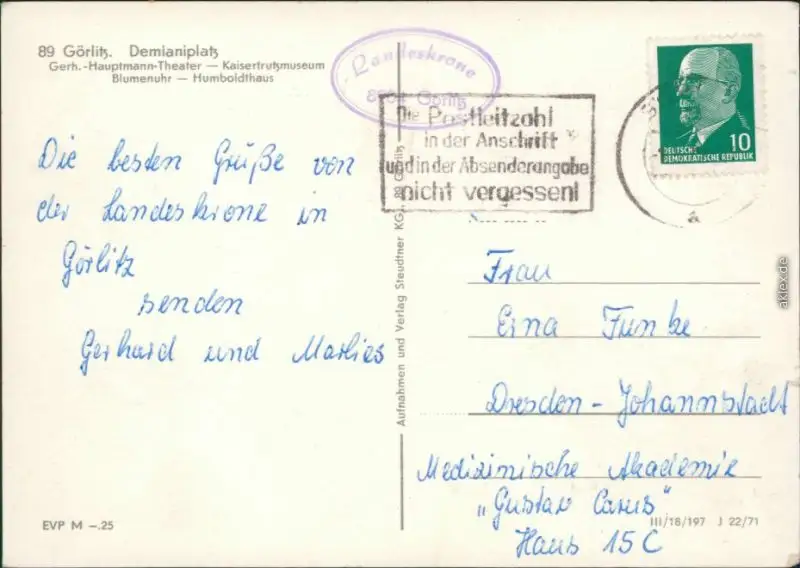 89 Görlitz. Demianiplatz
Gerh.-Hauptmann-Theater — Kaisertrutzmuseum
Blumenuhr — Humboldthaus
Landeskrone
Görlitz
Die Postleitzahl
in der Anschrift
und in der Absenderangabe
nicht vergessen!
10
DEUTSCHE
DEMOKRATISCHE REPUBLIK
a
Die besten Grüße von
der Landeskrone in
Görlitz
senden
Gerhard und Marlies
Aufnahmen und Verlag Steudtner KG, 89 Görlitz
Frau
Erna Funke
Dresden - Johannstadt
Medizinische Akademie
„Gustav Carus"
Haus 15 C
EVP M –.25
III/18/197 J 22/71
aklex.de